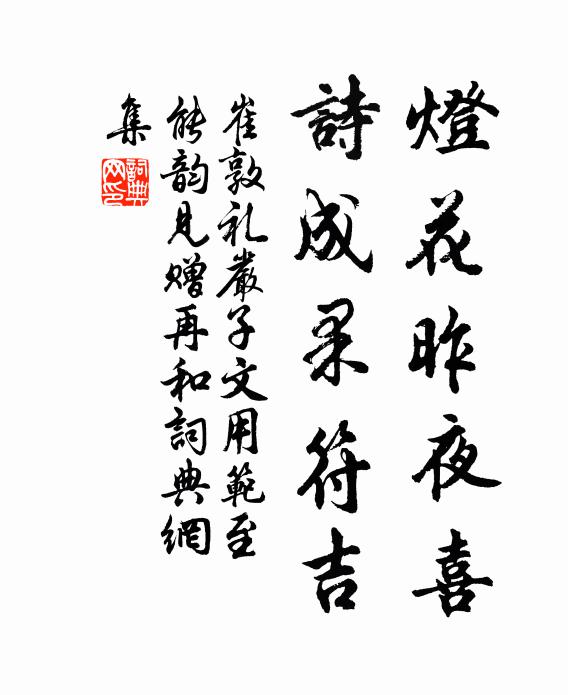 燈花昨夜喜
詩成果符吉
崔敦礼嚴子文用範至
能韵見贈再和詞典網
集
詞典网印